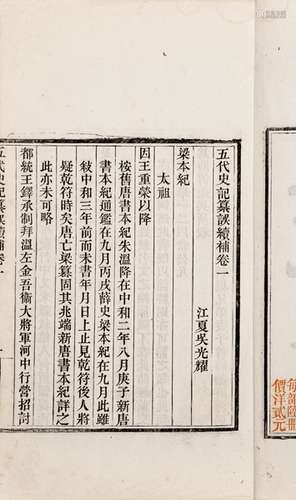 五代史記纂誤續補卷一
江夏吳光耀
梁本紀
太祖
因王重榮以降
按舊唐書本紀朱溫降在中和二年八月庚子新唐
書本紀通鑑在九月丙戌薛史梁本紀在九月此雖
敍中和三年前而未書年月日上止見乾符後人將
疑乾符時矣唐亡梁篡固其兆端新唐書本紀詳之
此亦未可略
都統王鐸承制拜溫左金吾衞大將軍河中行營招討
五代史記纂誤續補卷一
每部陸冊
價洋貳元